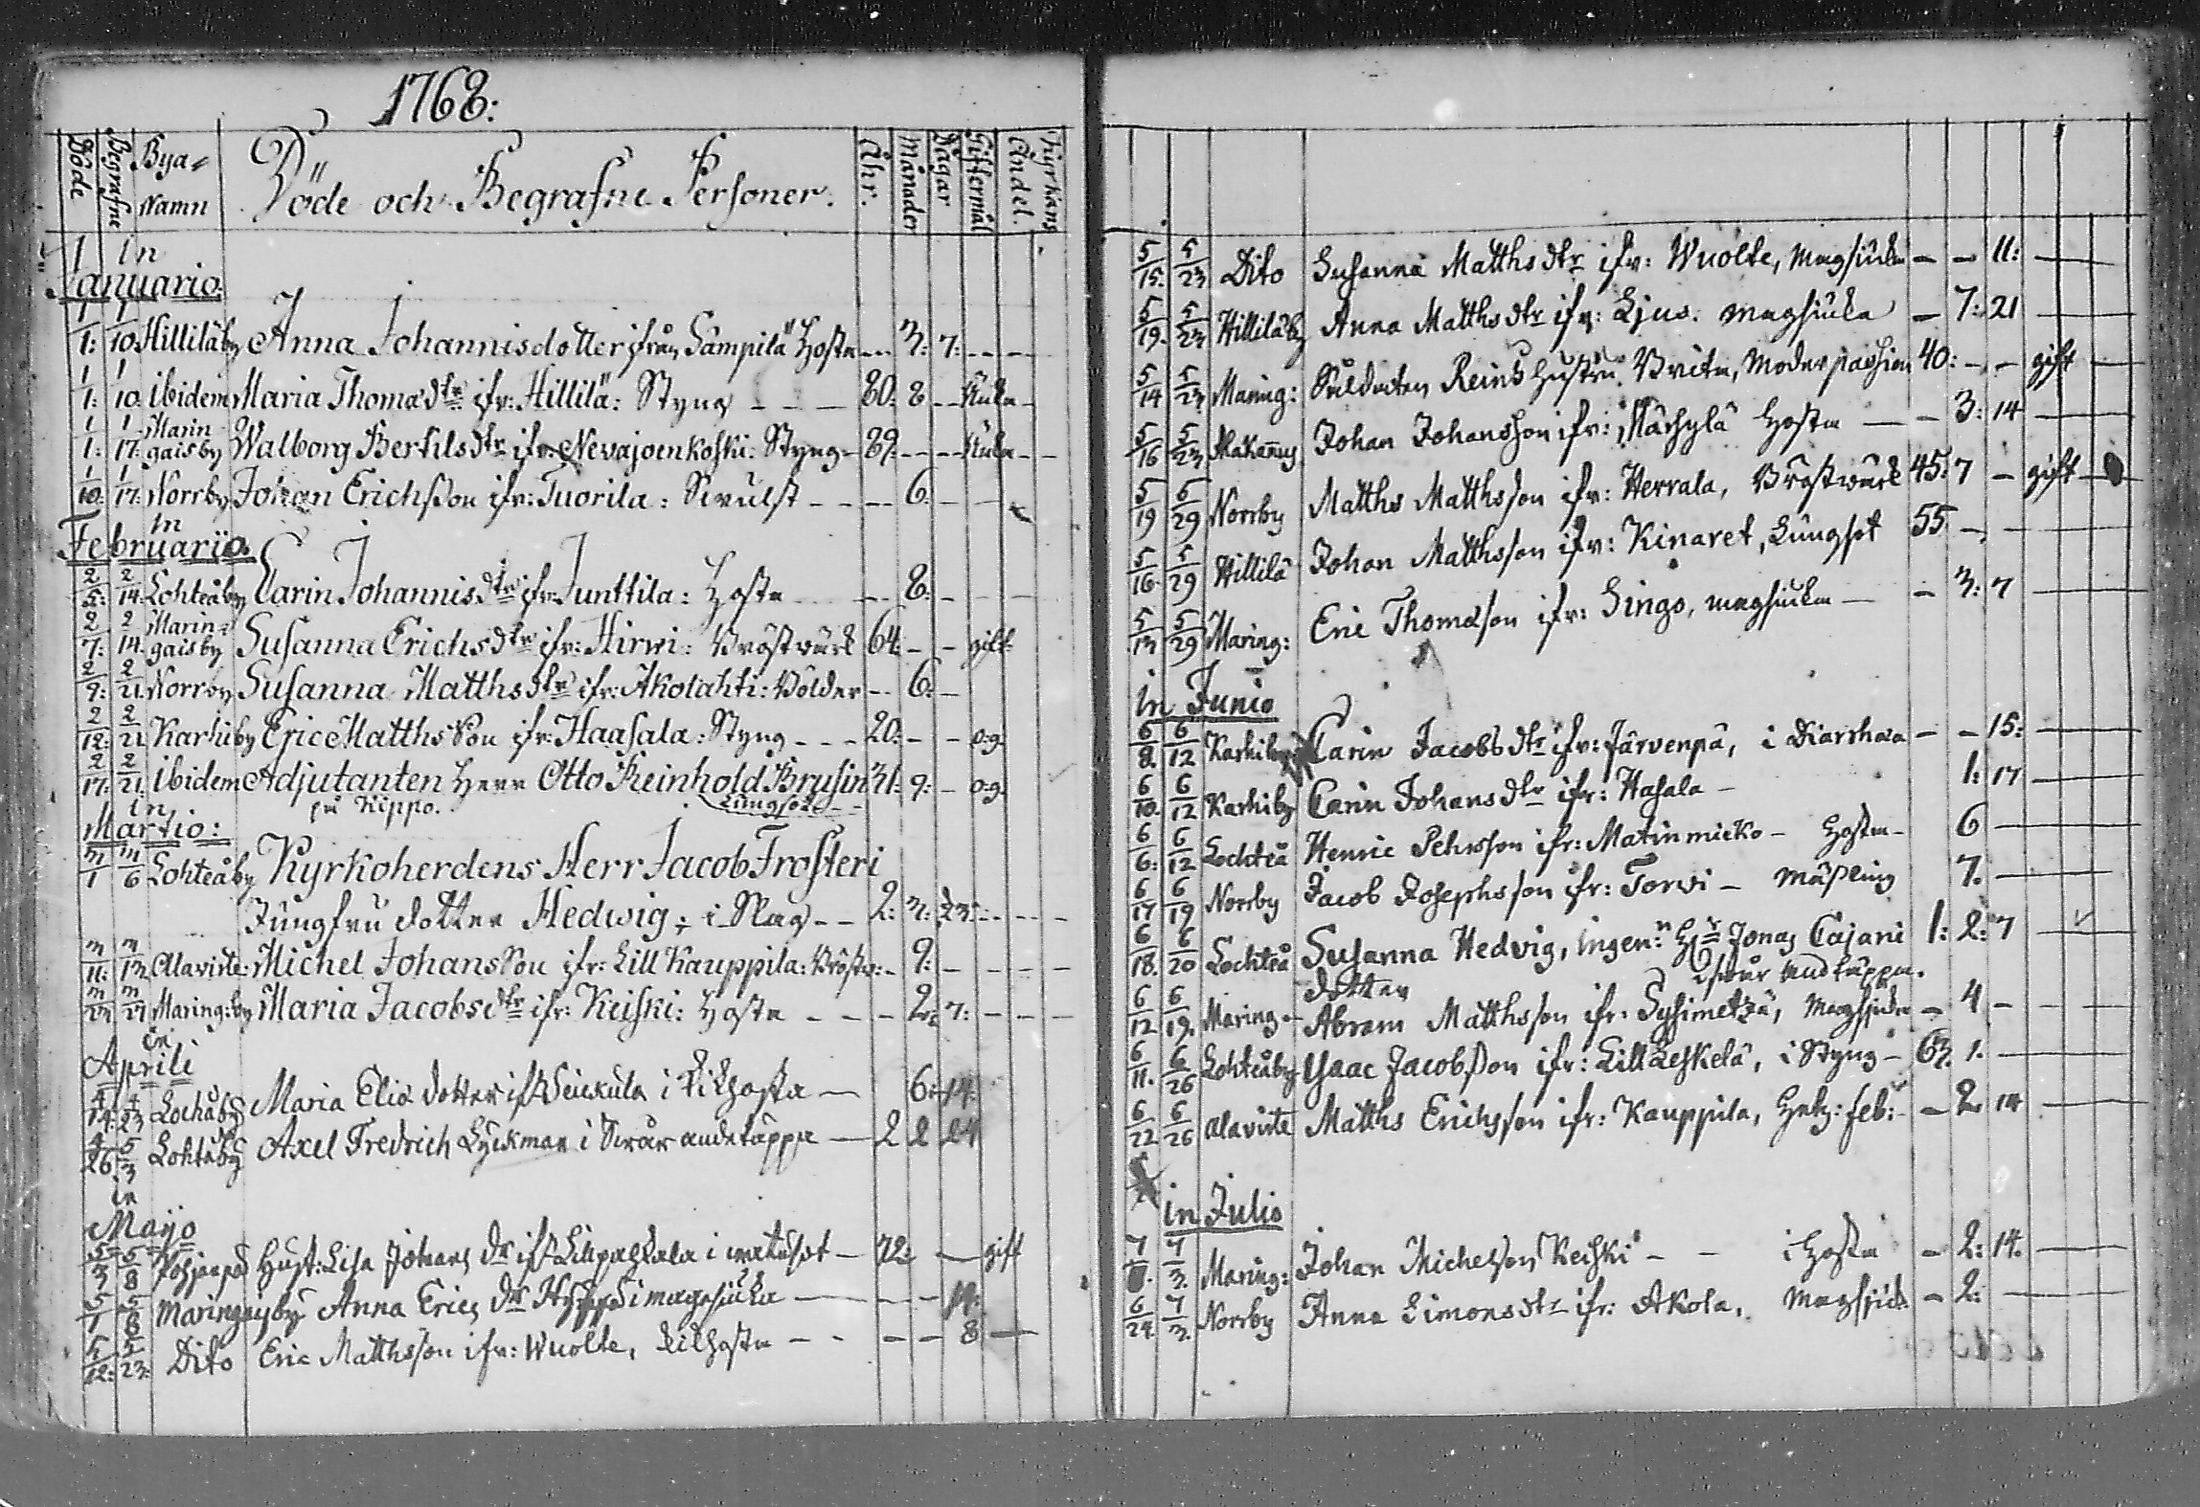 1768:
Döde Begrafne Bya= Namn Döde och Begrafne Personer. Åhr. Månader Dagar Giftermål Andel. Kyrkans
In Januario.
1/1: 1/10. Hillilåby Anna Johannisdotter ifrån Sämpilä Hosta -- 3: 7: -- --
1/1: 1/10. ibidem Maria Thomædtr ifr: Hillilä: Styng - - - 80: 8 -- Änka -
1/1: 1/17: Maringaisby Walborg Bertilsdtr ifr: Nevajoenkoski: Styng - 89: - - - Änka - -
1/10: 1/17: Norrby Johan Erichsson ifr: Tuorila: Swulst - - - - 6: - -
In Februario.
2/5: 2/14: Lohteåby Carin Johannisdtr ifr: Junttila: Hosta - - 8: - - - -
2/7: 2/14. Maringaisby Susanna Erichsdtr ifr: Hirwi: Bröstwärk 64: - - gift
2/9: 2/21 Norrby Susanna Matthsdtr ifr: Akolahti: Bölder -- 6: -
2/12: 2/21 Karhiby Eric Matthsson ifr: Haasala: Styng - - - 20: - - o.g.
2/17: 2/21. Ibidem Adjutanten Herr Otto Reinhold Brusin 31: 9: - o.g.
på Kippo. Lungsot
In Martio:
3/1 3/6 Lohteåby Kyrkoherdens Herr Jacob Frosteri
Jungfru dotter Hedwig: i Slag - - 2: 3: 23: - - - -
3/11: 3/13 Alaviste: Michel Johansson ifr: Lill Kauppila: Bröstv: - 9: - - - -
3/23 3/27 Maring:by Maria Jacobsdtr ifr: Keiski: Hosta - - - 2: 7: - - -
In Aprili
4/14: 4/23 Lochåby Maria Eliæ dotter ifr i Kikhosta - 6: 14:
4/26 5/3 Lohtåby Axel Fredrich Lyckman i Swår andetäppa - 2 2 24
In Majo
5/3 5/8 Pohjanpä Hust: Lisa Johans dr ifr Lillpahkala i matusot - 72: - gift
5/7 5/8 Maringaisby Anna Erics dr Hyyppä i magasiuka - - - 14:
5/12: 5/23: Dito Eric Matthsson ifr: Wuolte, Kikhosta - - - - 8 -
5/15. 5/23 Dito Susanna Matthsdtr ifr: Wuolte, Magsiuka - - 11: -
5/19. 5/23 Hillilåby Anna Matthsdtr ifr: Ljus. magsiuka - 7: 21 -
5/14 5/23 Maring: Soldaten Reins Hustru Brita, Moderpassion 40: - - gift -
5/16 5/23 Makanus Johan Johansson ifr: Märsylä Hosta - - 3: 14 -
5/19 5/29 Norrby Matths Matthsson ifr: Herrala, Bröstwärk 45: 7 - gift -
5/16. 5/29 Hillilå Johan Matthsson ifr: Kinaret, Lungsot 55 - -
5/13 5/29 Maring: Eric Thomæson ifr: Singo, magsiuka - - 3: 7 -
in Junio
6/8. 6/12 Karhiby Carin Jacobsdtr ifr: Järvenpä, i Diarrhæa - - 15: -
6/10. 6/12 Karhiby Carin Johansdtr ifr: Hasala - 1: 17 -
6/6: 6/12 Lochteå Henric Pehrsson ifr: Matinmicko - Hosta - 6 -
6/17 6/19 Norrby Jacob Josephsson ifr: Torvi - Mässling 7. -
6/18. 6/20 Lochteå Susanna Hedvig, Ingen:n Hr Jonas Cajani 1: 2: 7 -
dotter i swår andtäppa.
6/12 6/19. Maring - Abram Matthsson ifr: Sysimetzä, Magsjuka - 4 -
6/11. 6/26 Lohteåby Ysaac Jacobsson ifr: Lill Leskelä, i Styng - 63. 1. -
6/22 6/26 Alaviste Matths Erichsson ifr: Kauppila, Hetz: feb: - 2 14 -
in Julio
7/1. 7/3. Maring: Johan Michelsson Keiski - - i Hosta - 2: 14. -
6/24. 7/3. Norrby Anna Simonsdtr ifr: Akola, Magsjuk. - 2: -